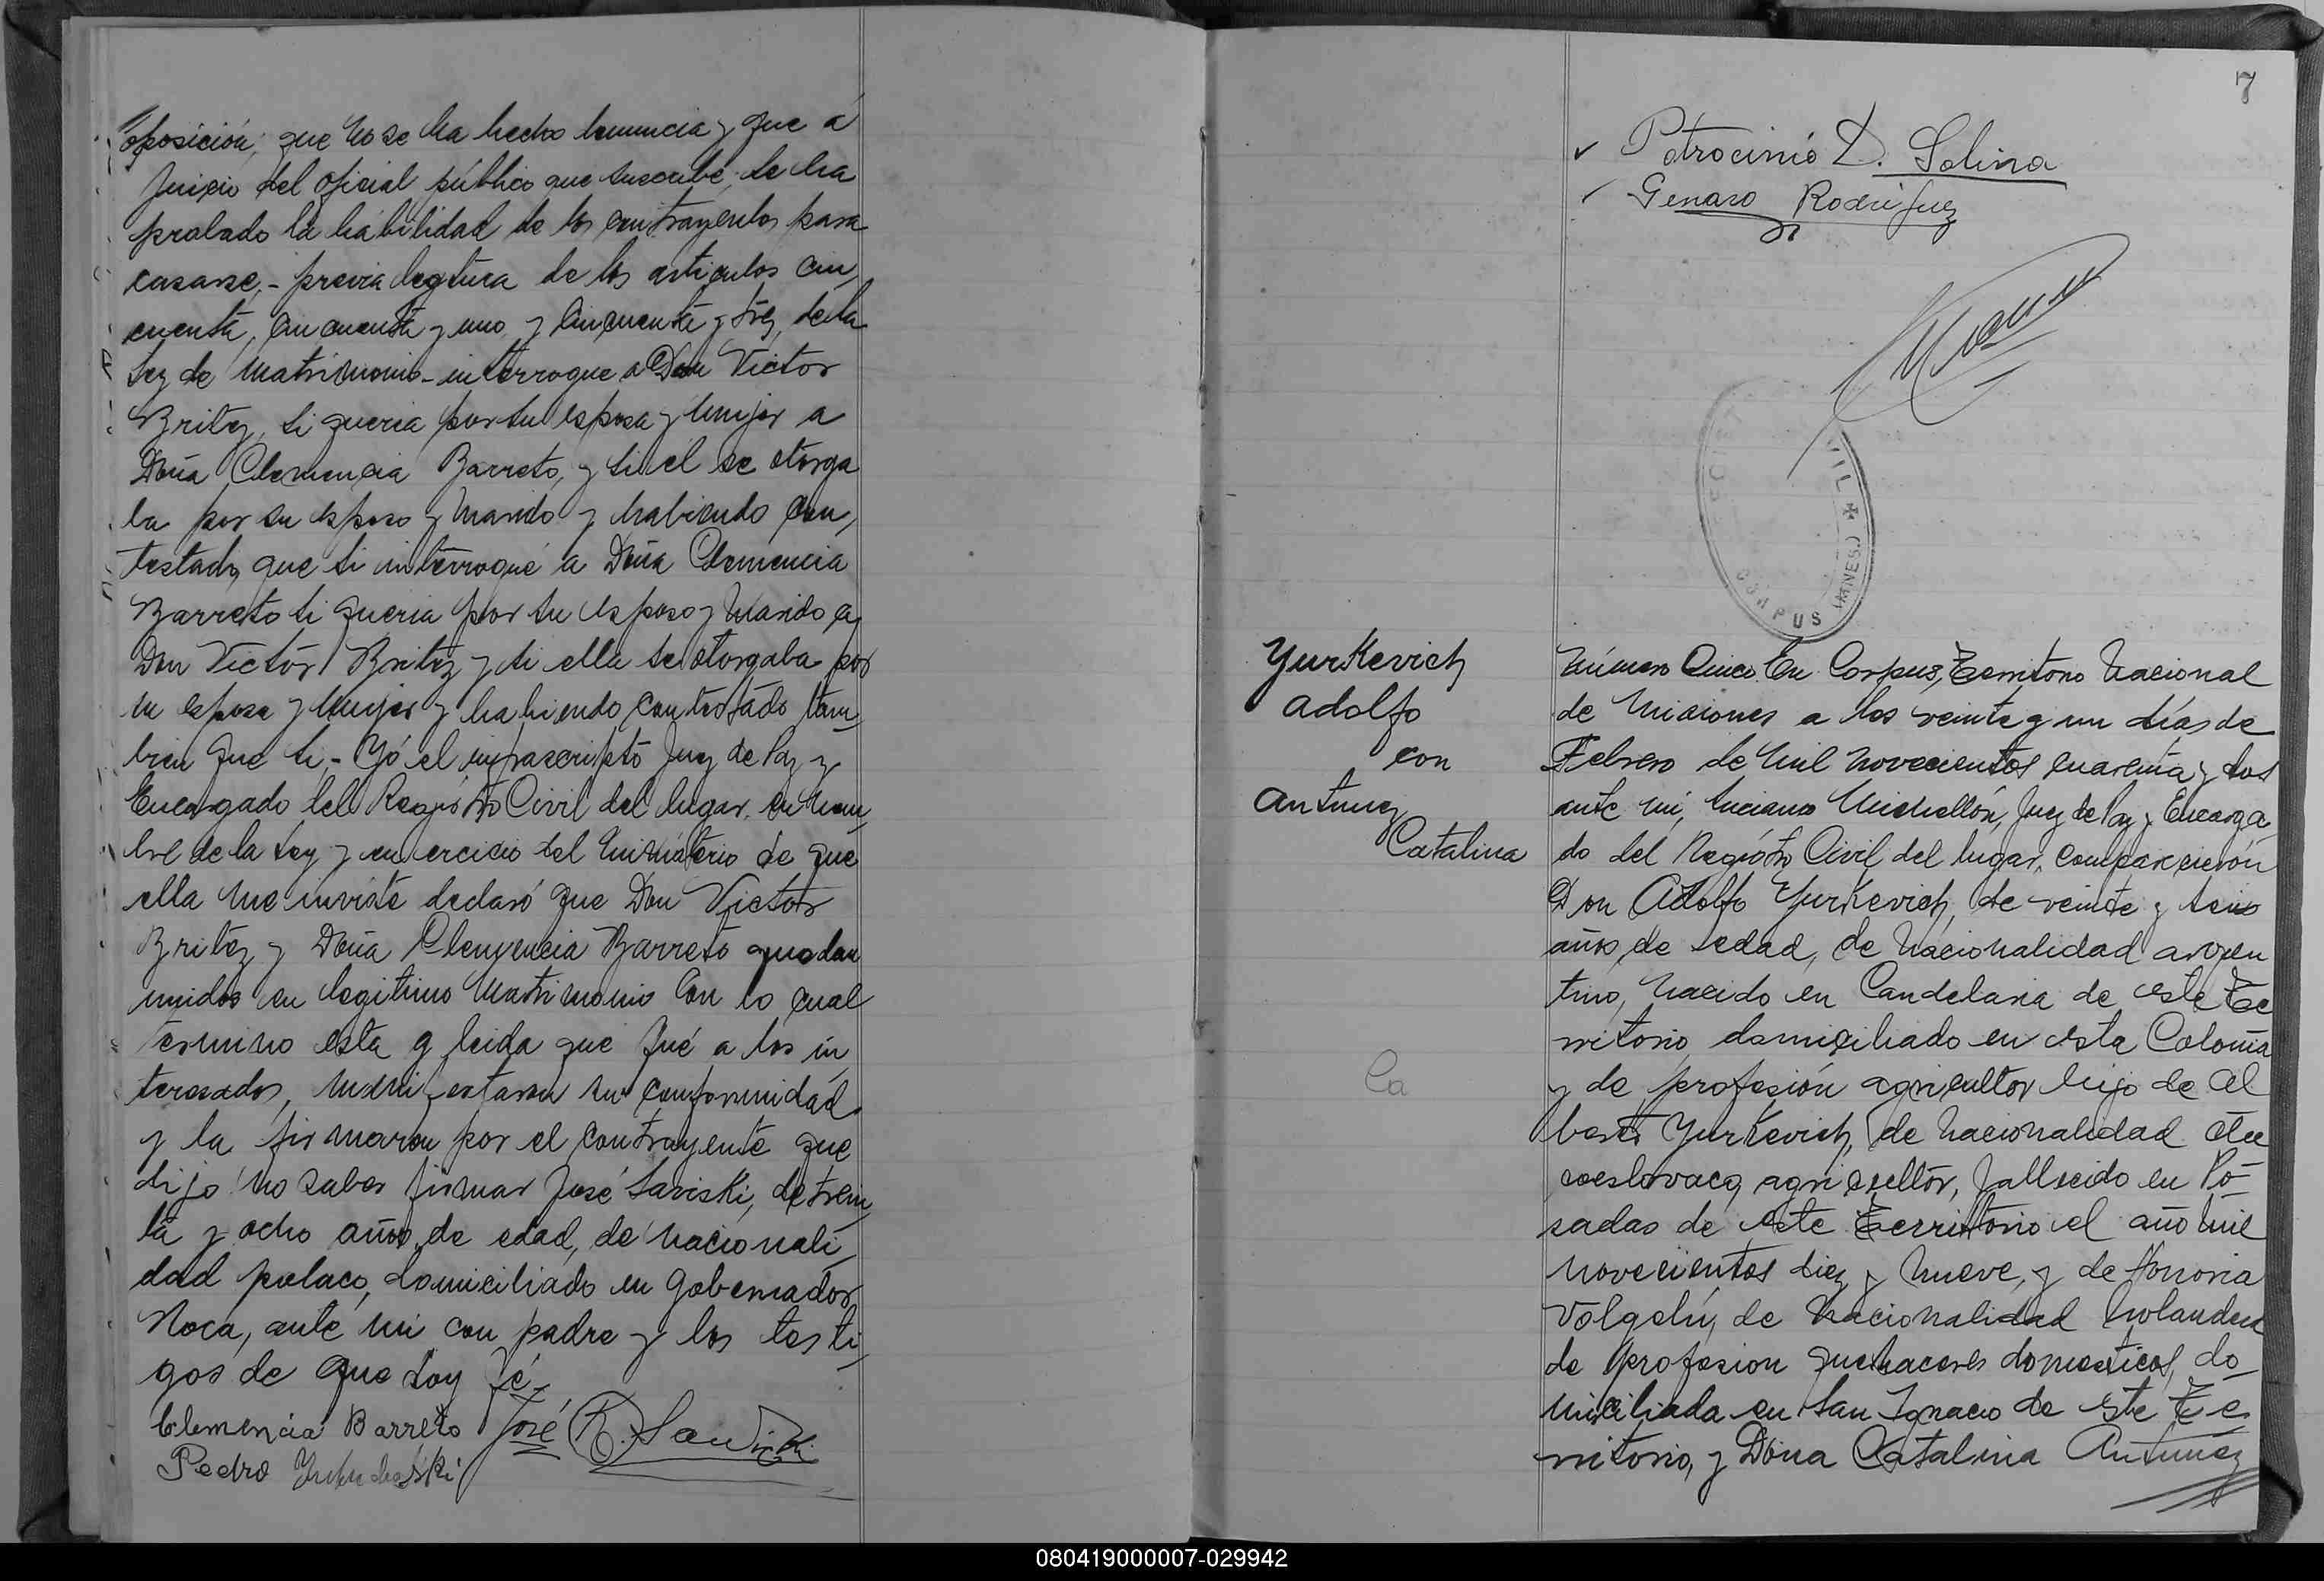 oposición; que no se ha hecho denuncia y que a
juicio del oficial público que suscribe, se ha
probado la habilidad de los contrayentes para
casarse.- previa lectura de los articulos cin,
cuenta, cincuenta y uno y cincuenta y tres, de la
Ley de Matrimonio- interrogue a Don Victor
Britez, si queria por su esposa y mujer a
Doña Clemencia Barreto, y si el se otorga
ba por su esposo y marido y habiendo con,
testado que si interrogué a Doña Clemencia
Barreto si queria por su esposo y marido a
Don Victor Britez y si ella se otorgaba por
su esposa y mujer y habiendo contestado tam,
bien que si.- Yó el infrascripto Juez de Paz y
Encargado del Registro Civil del lugar, en nom,
bre de la Ley y en ercicio del ministerio de que
ella me inviste declaró que Don Victor
Britez y Doña Clemencia Barreto quedan
unidos en legitimo Matrimonio Con lo cual
termino esta q leida que fué a los in,
teresados, manifestaron su conformidad
y la firmaron por el contrayente que
dijo no saber firmar José Saviski, de trein,
ta y ocho años de edad, de nacionali,
dad polaco, domiciliado en Gobernador
Roca, ante mi con padre y los testi,
gos de que doy fé.
Clemencia Barreto José R. Sawicki
Pedro
7
Patrocinio D. Solina
Genaro Rodriguez
CIVIL
CORPUS (MNES.)
Yurkevich
Adolfo
con
Antunez
Catalina
Número Cinco. En Corpus, Territorio Nacional
de Misiones a los veinte y un días de
Febrero de mil novecientos cuarenta y dos
ante mi, Luciano Michellón, Juez de Paz y Encarga
do del Registro Civil del lugar, comparecieron
Don Adolfo Yurkevich, de veinte y seis
años de edad, de nacionalidad argen
tino, nacido en Candelaria de este Te
rritorio domiciliado en esta Colonia
La
y de profesión agricultor hijo de Al
berto Yurkevich, de nacionalidad checo
coeslovaco, agricultor, fallecido en Po-
sadas de este Territorio el año mil
novecientos diez y nueve, y de Honoria
Volgelín, de nacionalidad holandesa
de profesion quehaceres domesticos, do-
miciliada en San Ignacio de este Te
rritorio, y Doña Catalina Antunez
080419000007-029942